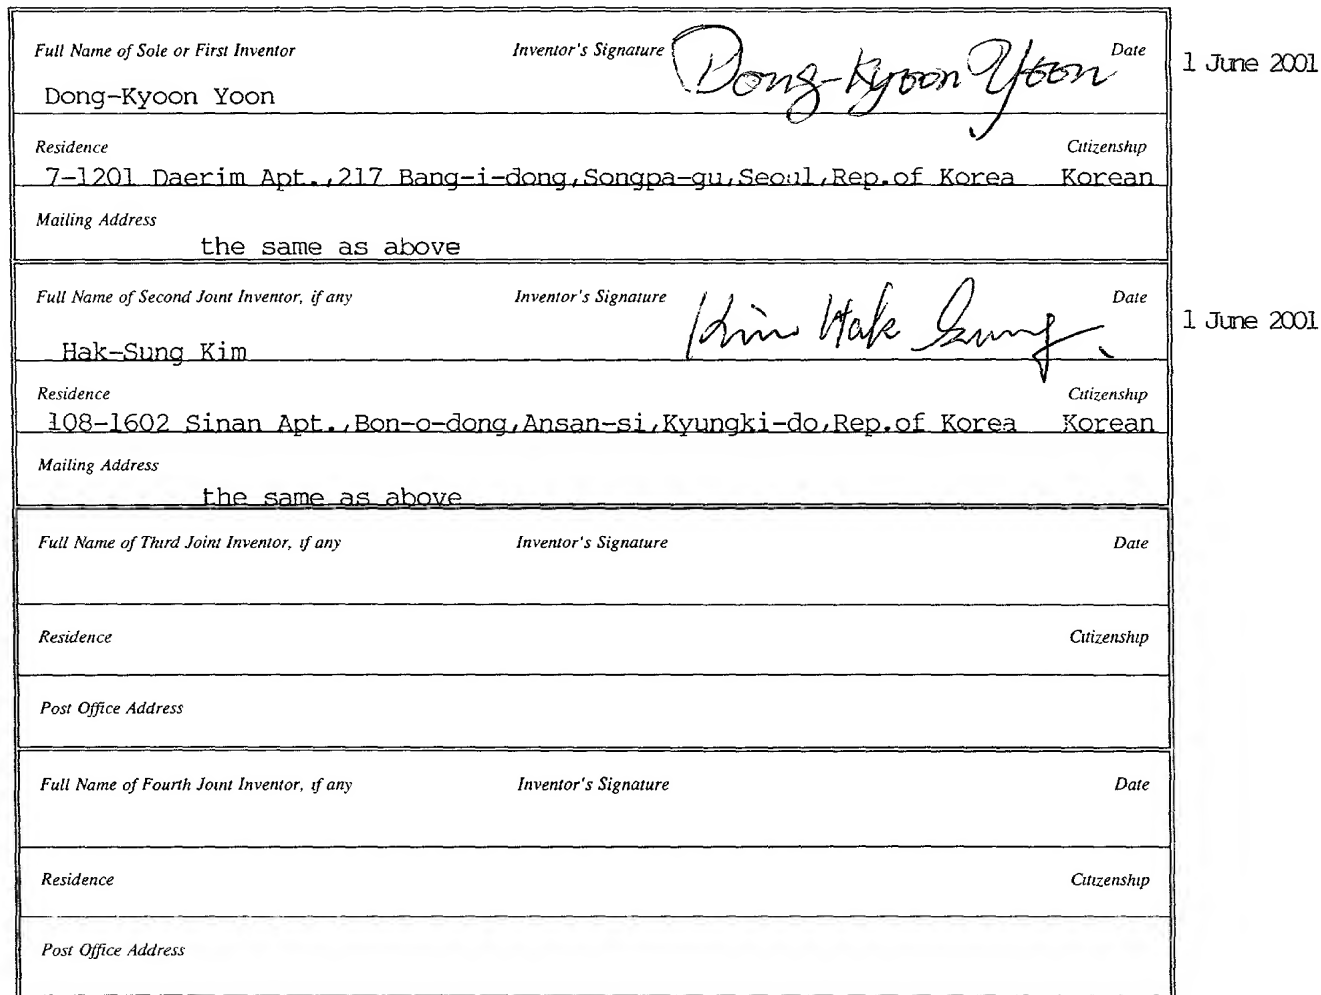 Full Name of Sole or First Inventor Inventor's Signature Dong-Kyoon Yoon Date 1 June 2001
Dong-Kyoon Yoon
Residence Citizenship
7-1201 Daerim Apt.,217 Bang-i-dong,Songpa-gu,Seoul,Rep.of Korea Korean
Mailing Address
the same as above
Full Name of Second Joint Inventor, if any Inventor's Signature Kim Hak Sung Date 1 June 2001
Hak-Sung Kim
Residence Citizenship
108-1602 Sinan Apt.,Bon-o-dong,Ansan-si,Kyungki-do,Rep.of Korea Korean
Mailing Address
the same as above
Full Name of Third Joint Inventor, if any Inventor's Signature Date
Residence Citizenship
Post Office Address
Full Name of Fourth Joint Inventor, if any Inventor's Signature Date
Residence Citizenship
Post Office Address